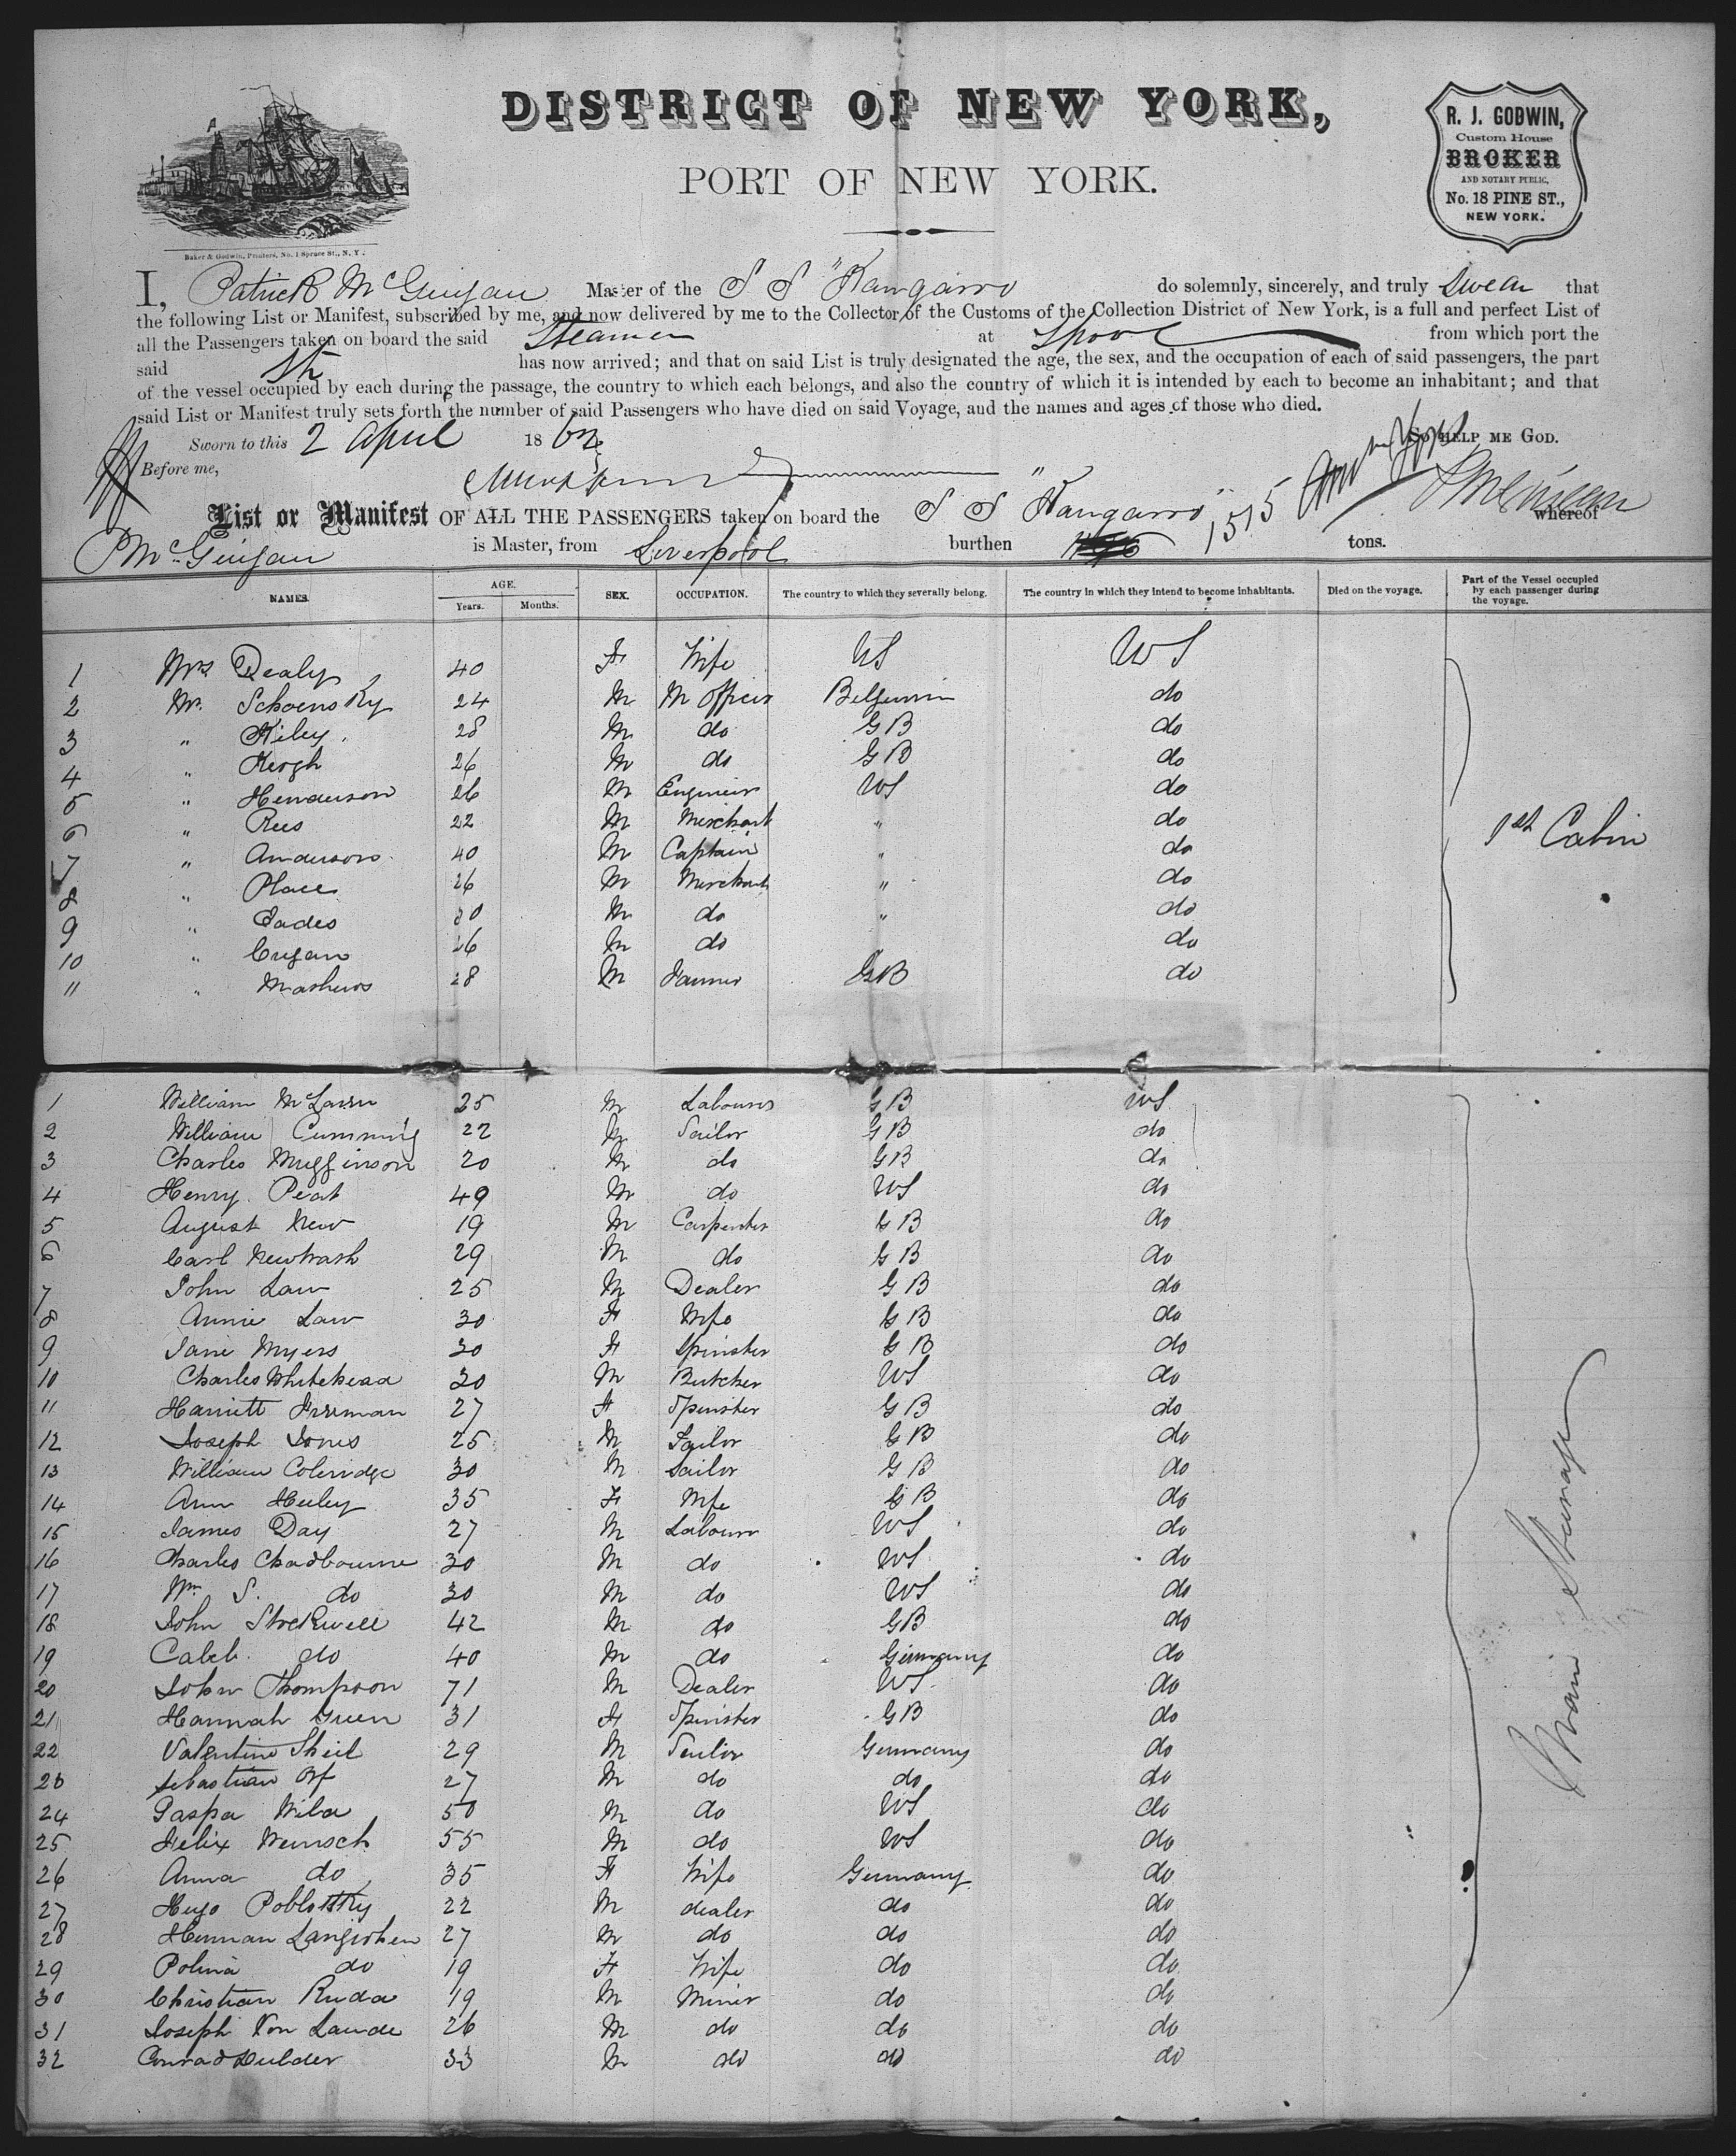 DISTRICT OF NEW YORK,
PORT OF NEW YORK.
R. J. GODWIN,
Custom House
BROKER
AND NOTARY PUBLIC,
No. 18 PINE ST.,
NEW YORK.
Baker & Godwin, Printers, No. 1 Spruce St., N. Y.
I, Patrick McGuigan Master of the S S "Kangaroo do solemnly, sincerely, and truly swear that
the following List or Manifest, subscribed by me, and now delivered by me to the Collector of the Customs of the Collection District of New York, is a full and perfect List of
all the Passengers taken on board the said Steamer at Lpool from which port the
said Str has now arrived; and that on said List is truly designated the age, the sex, and the occupation of each of said passengers, the part
of the vessel occupied by each during the passage, the country to which each belongs, and also the country of which it is intended by each to become an inhabitant; and that
said List or Manifest truly sets forth the number of said Passengers who have died on said Voyage, and the names and ages of those who died.
Sworn to this 2 April 1862 SO HELP ME GOD.
Before me,
List or Manifest OF ALL THE PASSENGERS taken on board the S S "Kangaroo 1515 whereof
P McGuigan is Master, from Liverpool burthen tons.
NAMES. AGE. Years. Months. SEX. OCCUPATION. The country to which they severally belong. The country in which they intend to become inhabitants. Died on the voyage. Part of the Vessel occupied by each passenger during the voyage.
1 Mrs Dealy 40 F Wife US US
2 Mr. Schoensky 24 M M Officer Belgium do
3 " Kiley 28 M do GB do
4 " Keogh 26 M do GB do
5 " Henderson 26 M Engineer US do
6 " Rees 22 M Merchant " do
7 " Anderson 40 M Captain " do
1st Cabin
8 " Place 26 M Merchant " do
9 " Eades 30 M do " do
10 " Cugan 26 M do " do
11 " Mathews 28 M Farmer GB do
1 William McLaren 25 M Labourer GB US
2 William Cumming 22 M Sailor GB do
3 Charles Mugginson 20 M do GB do
4 Henry Peat 49 M do US do
5 August New 19 M Carpenter GB do
6 Carl Newtrash 29 M do GB do
7 John Law 25 M Dealer GB do
8 Annie Law 30 F Wife GB do
9 Jane Myers 30 F Spinster GB do
10 Charles Whitehead 30 M Butcher US do
11 Harriett Freeman 27 F Spinster GB do
12 Joseph Jones 25 M Tailor GB do
13 William Coleridge 30 M Sailor GB do
14 Ann Heeley 35 F Wife GB do
15 James Day 27 M Labourer US do
16 Charles Chadbourne 30 M do US do
17 Wm S. do 30 M do US do
18 John Stockwell 42 M do GB do
19 Caleb do 40 M do Germany do
Main Steerage
20 John Thompson 71 M Dealer US do
21 Hannah Green 31 F Spinster GB do
22 Valentine Sheil 29 M Tailor Germany do
23 Sebastian Orf 27 M do do do
24 Gaspa Wiba 50 M do US do
25 Felix Wenisch 55 M do US do
26 Anna do 35 F Wife Germany do
27 Hugo Poblotzky 22 M dealer do do
28 Herman Langerhen 27 M do do do
29 Polina do 19 F Wife do do
30 Christian Ruda 19 M Miner do do
31 Joseph Von Lande 26 M do do do
32 Conrad Hulder 33 M do do do